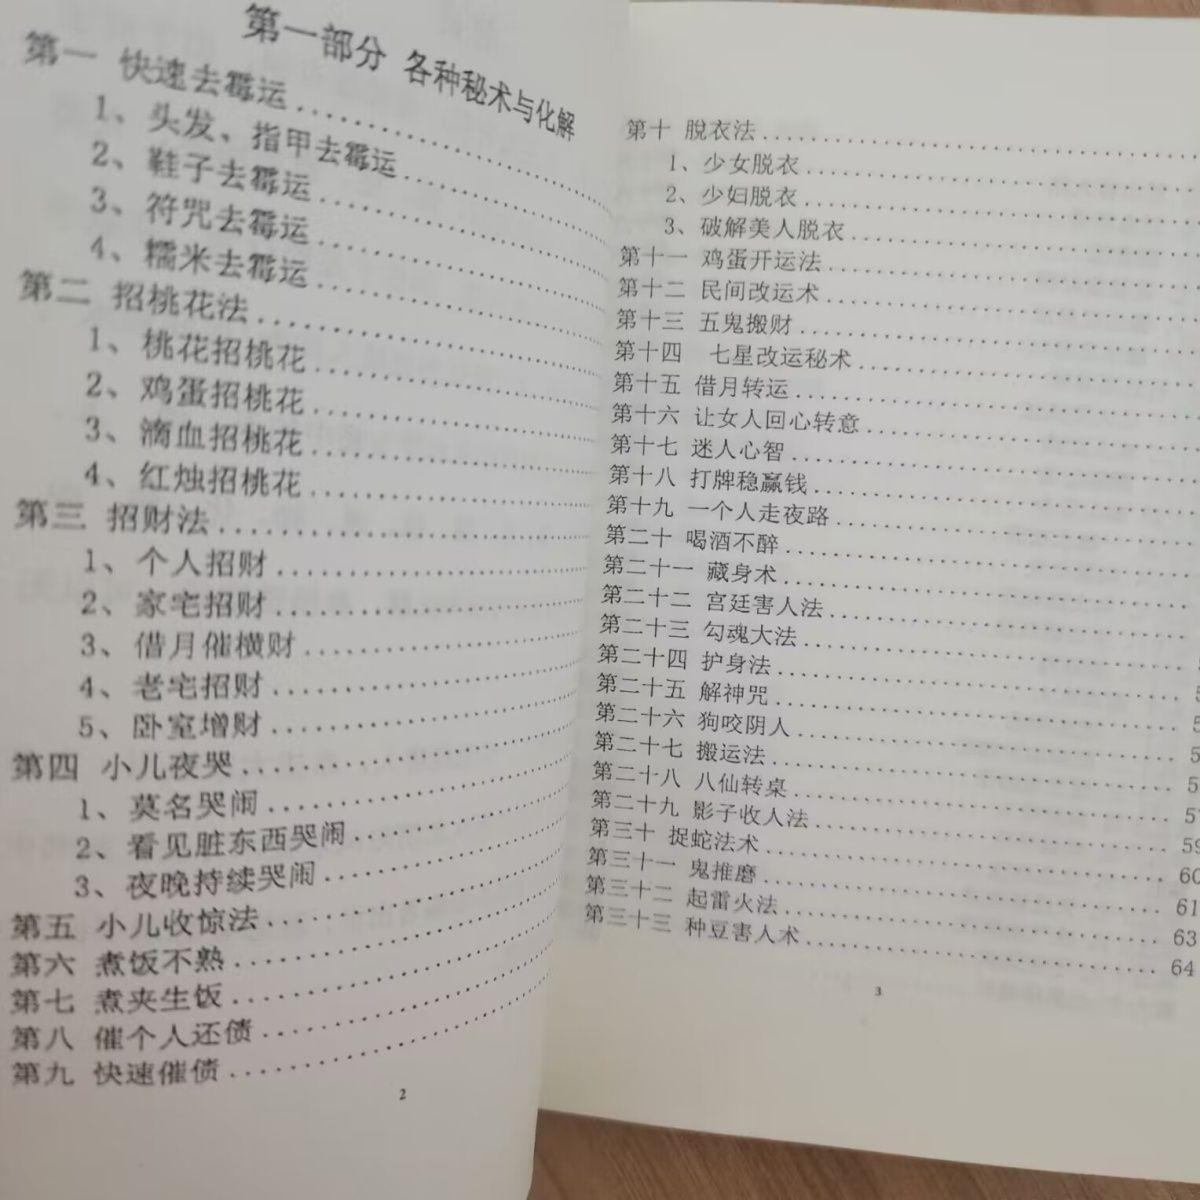 第一部分 各种秘术与化解
第一 快速去霉运
1、头发、指甲去霉运
2、鞋子去霉运
3、符咒去霉运
4、糯米去霉运
第二 招桃花法
1、桃花招桃花
2、鸡蛋招桃花
3、滴血招桃花
4、红烛招桃花
第三 招财法
1、个人招财
2、家宅招财
3、借月催横财
4、老宅招财
5、卧室增财
第四 小儿夜哭
1、莫名哭闹
2、看见脏东西哭闹
3、夜晚持续哭闹
第五 小儿收惊法
第六 煮饭不熟
第七 煮夹生饭
第八 催个人还债
第九 快速催债
2
第十 脫衣法
1、少女脱衣
2、少妇脱衣
3、破解美人脱衣
第十一 鸡蛋开运法
第十二 民间改运术
第十三 五鬼搬财
第十四 七星改运秘术
第十五 借月转运
第十六 让女人回心转意
第十七 迷人心智
第十八 打牌稳赢钱
第十九 一个人走夜路
第二十 喝酒不醉
第二十一 藏身术
第二十二 宫廷害人法
第二十三 勾魂大法
第二十四 护身法
第二十五 解神咒
第二十六 狗咬阴人
第二十七 搬运法
第二十八 八仙转桌
第二十九 影子收人法
第三十 捉蛇法术 59
第三十一 鬼推磨 60
第三十二 起雷火法 61
第三十三 种豆害人术 63
64
3